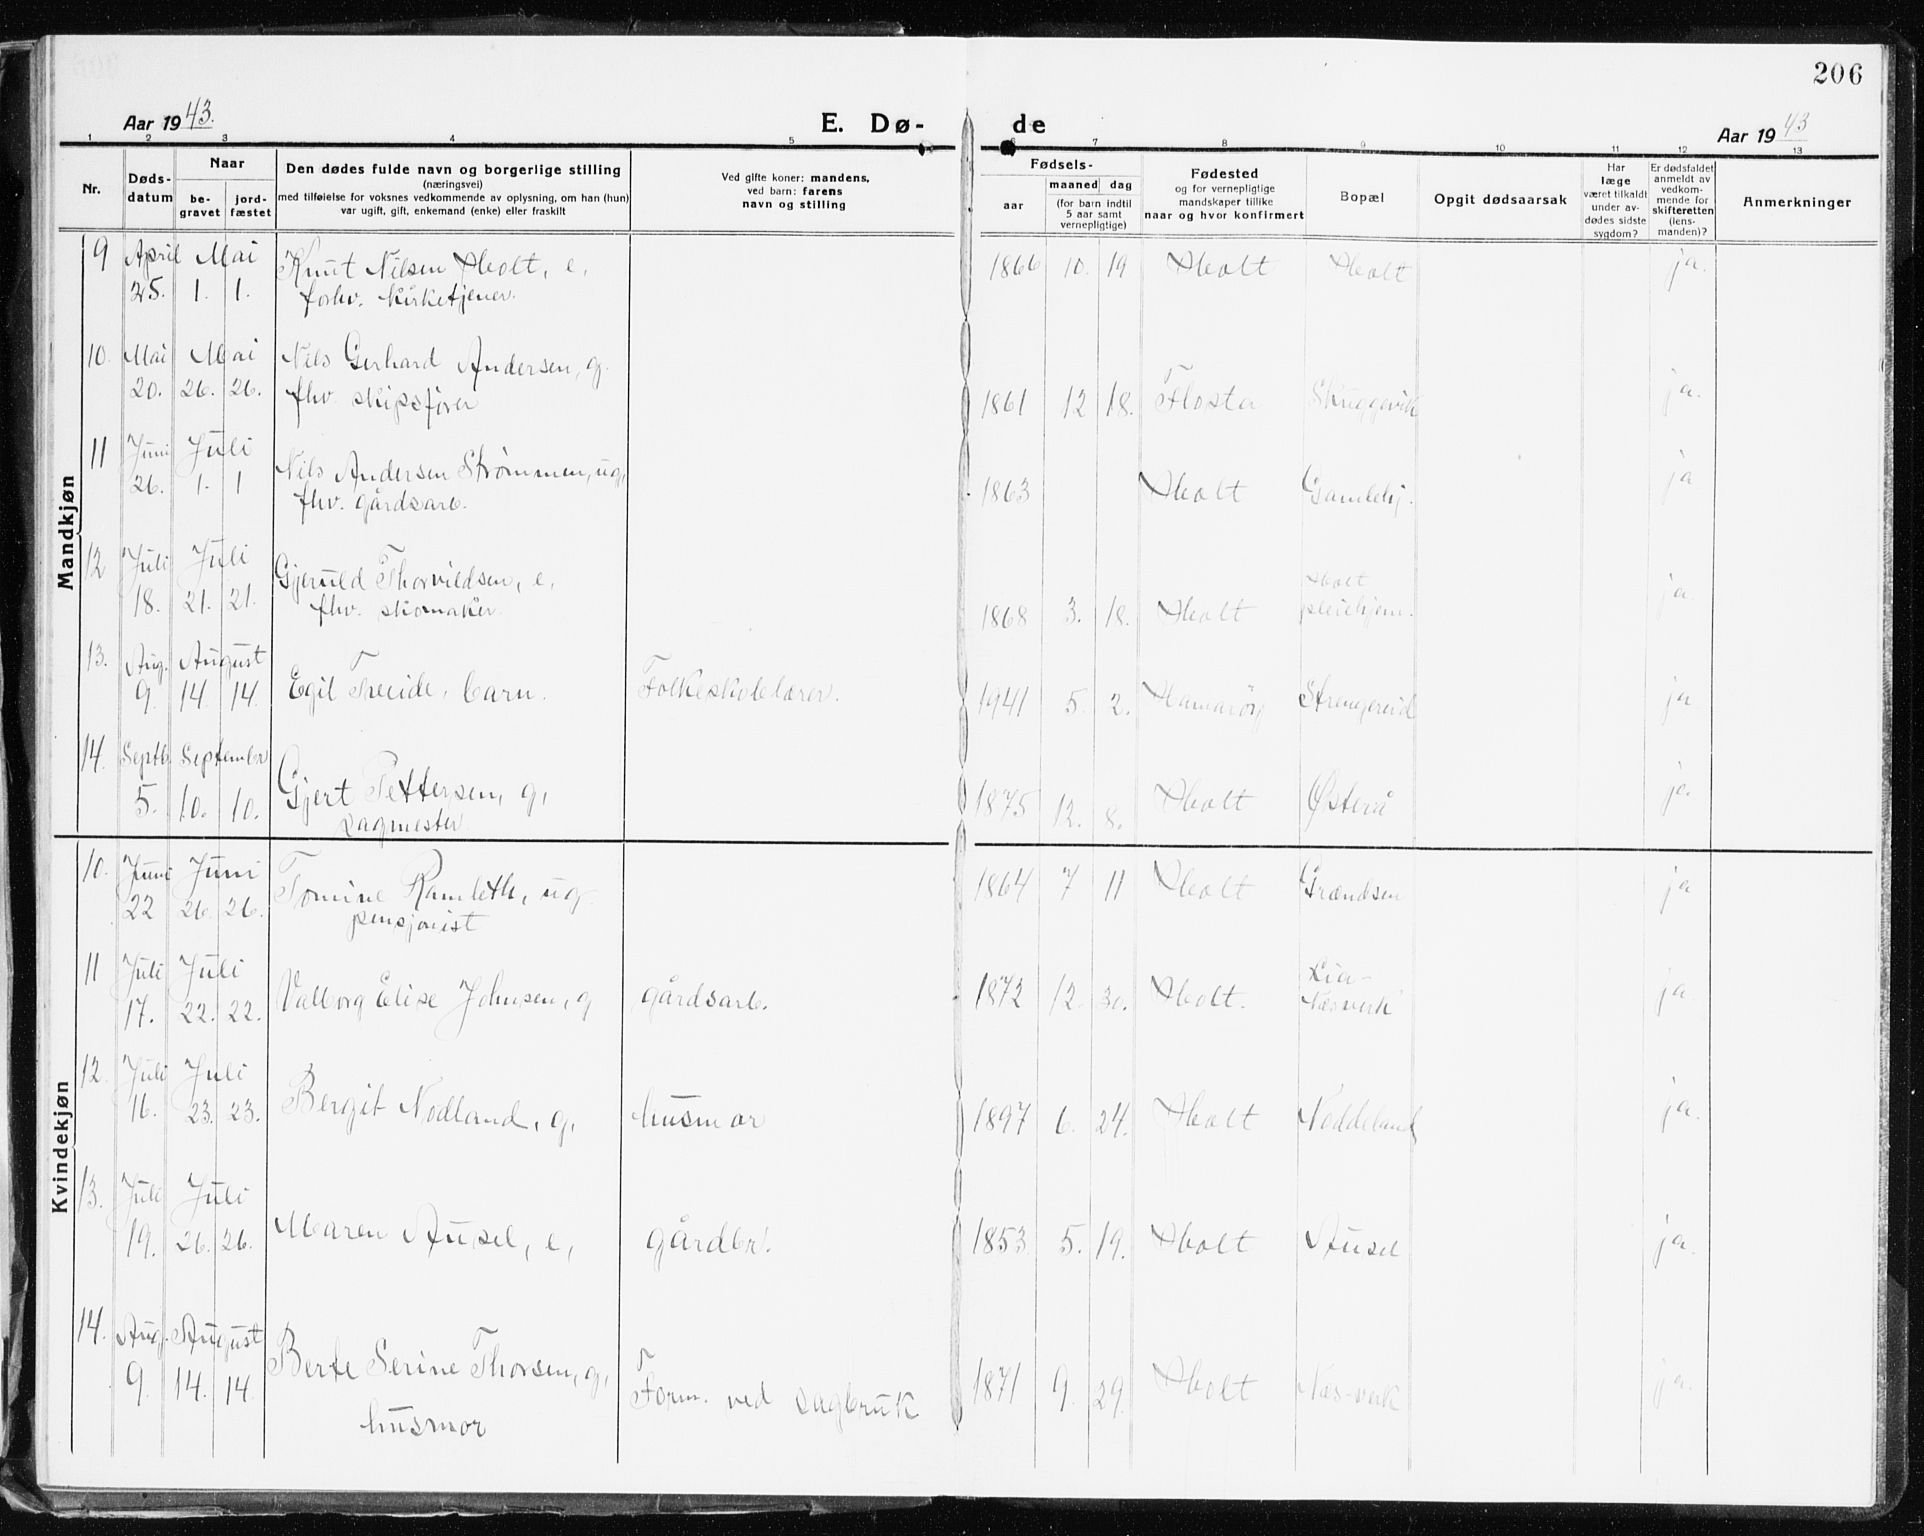 206
Aar 1943.
E. Dø-
de
Aar 1943
1 2 3 4 5 6 7 8 9 10 11 12 13
Nr.
Døds-
datum
Naar
be-
gravet
jord-
fæstet
Den dødes fulde navn og borgerlige stilling
(næringsvei)
med tilføielse for voksnes vedkommende av oplysning, om han (hun)
var ugift, gift, enkemand (enke) eller fraskilt
Ved gifte koner: mandens,
ved barn: farens
navn og stilling
Fødsels-
aar
maaned dag
(for barn indtil
5 aar samt
vernepligtige)
Fødested
og for vernepligtige
mandskaper tillike
naar og hvor konfirmert
Bopæl
Opgit dødsaarsak
Har
læge
været tilkaldt
under av-
dødes sidste
sygdom?
Er dødsfaldet
anmeldt av
vedkom-
mende for
skifteretten
(lens-
manden)?
Anmerkninger
Mandkjøn
9 April Mai Knut Nilsen Holt, e, 1866 10. 19 Holt Holt ja.
25. 1. 1. forhv. kirketjener.
10. Mai Mai Nils Gerhard Andersen, g.
20. 26. 26. fhv. skipsfører 1861 12 18. Flosta Skuggevik ja.
11 Juni Juli Nils Andersen Strømmen, ug,
26. 1. 1 fhv. gårdsarb. 1863 Holt Gamlehj. ja
12 Juli Juli Gjeruld Thorvildsen, e, Holt
18. 21. 21. fhv. skomaker. 1868 3. 18. Holt pleiehjem. ja.
13. Aug. August
9. 14. 14. Egil Treide, barn. Folkeskolelærer. 1941 5. 2. Hamarøy Strengereid ja
14. Septb. September
5. 10. 10. Gjert Pettersen, g, 1875 12. 8. Holt Østerå ja.
sagmester
Kvindekjøn
10. Juni Juni Tomine Ramleth, ug. 1864 7 11 Holt Grændsen ja
22 26. 26. pensjonist
11 Juli Juli Lia-
17. 22. 22. Valborg Elise Johnsen, g gårdsarb. 1872 12. 30. Holt. Næsverk ja.
12. Juli Juli
16. 23. 23. Bergit Nodland, g, husmor 1897 6. 24. Holt Noddeland ja.
13. Juli Juli
19. 26. 26. Maren Ausel, e, gårdbr. 1853 5. 19. Holt Ausel ja.
14. Aug. August
9. 14. 14. Berte Serine Thorsen, g, Form. ved sagbruk 1871 9. 29. Holt Næs-verk ja.
husmor